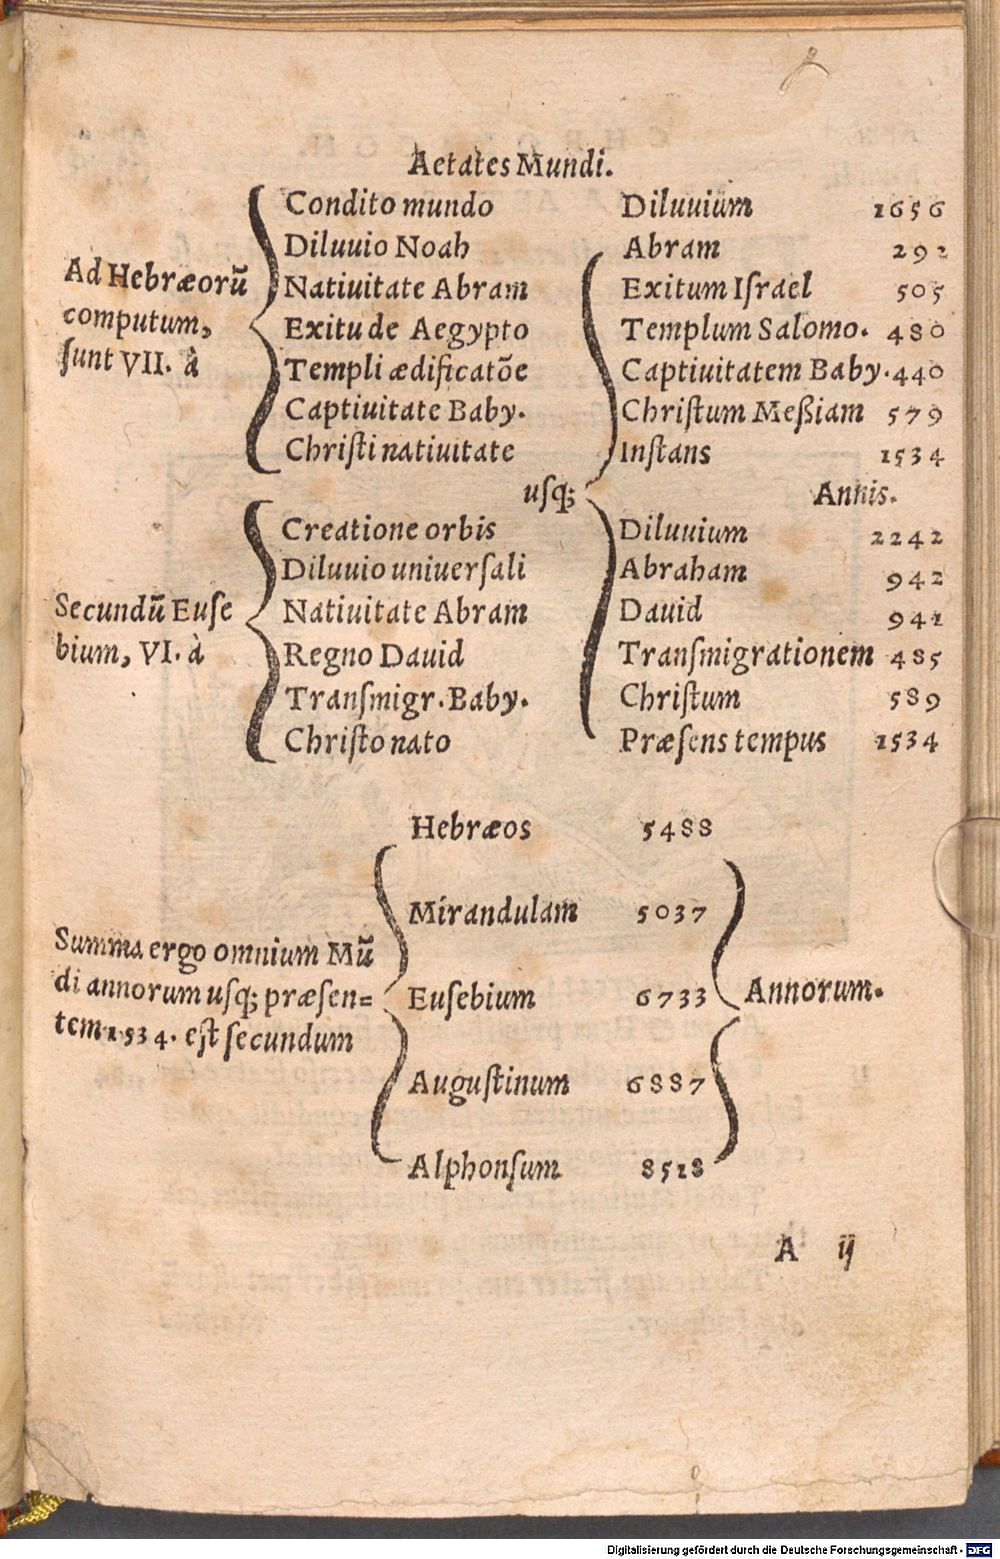 Aetates Mundi.
Condito mundo Diluuium 1656
Diluuio Noah Abram 292
Ad Hebræorū Natiuitate Abram Exitum Iſrael 505
computum, Exitu de Aegypto Templum Salomo. 480
ſunt VII. à Templi ædificatōe Captiuitatem Baby. 440
Captiuitate Baby. Chriſtum Meßiam 579
Chriſti natiuitate Inſtans 1534
uſq; Annis.
Creatione orbis Diluuium 2242
Diluuio uniuerſali Abraham 942
Secundū Euſe Natiuitate Abram Dauid 941
bium, VI. à Regno Dauid Tranſmigrationem 485
Tranſmigr. Baby. Chriſtum 589
Chriſto nato Præſens tempus 1534
Hebræos 5488
Mirandulam 5037
Summa ergo omnium Mū
di annorum uſq; præſen= Euſebium 6733 Annorum.
tem 1534. eſt ſecundum
Auguſtinum 6887
Alphonſum 8518
A ij
Digitalisierung gefördert durch die Deutsche Forschungsgemeinschaft - DFG